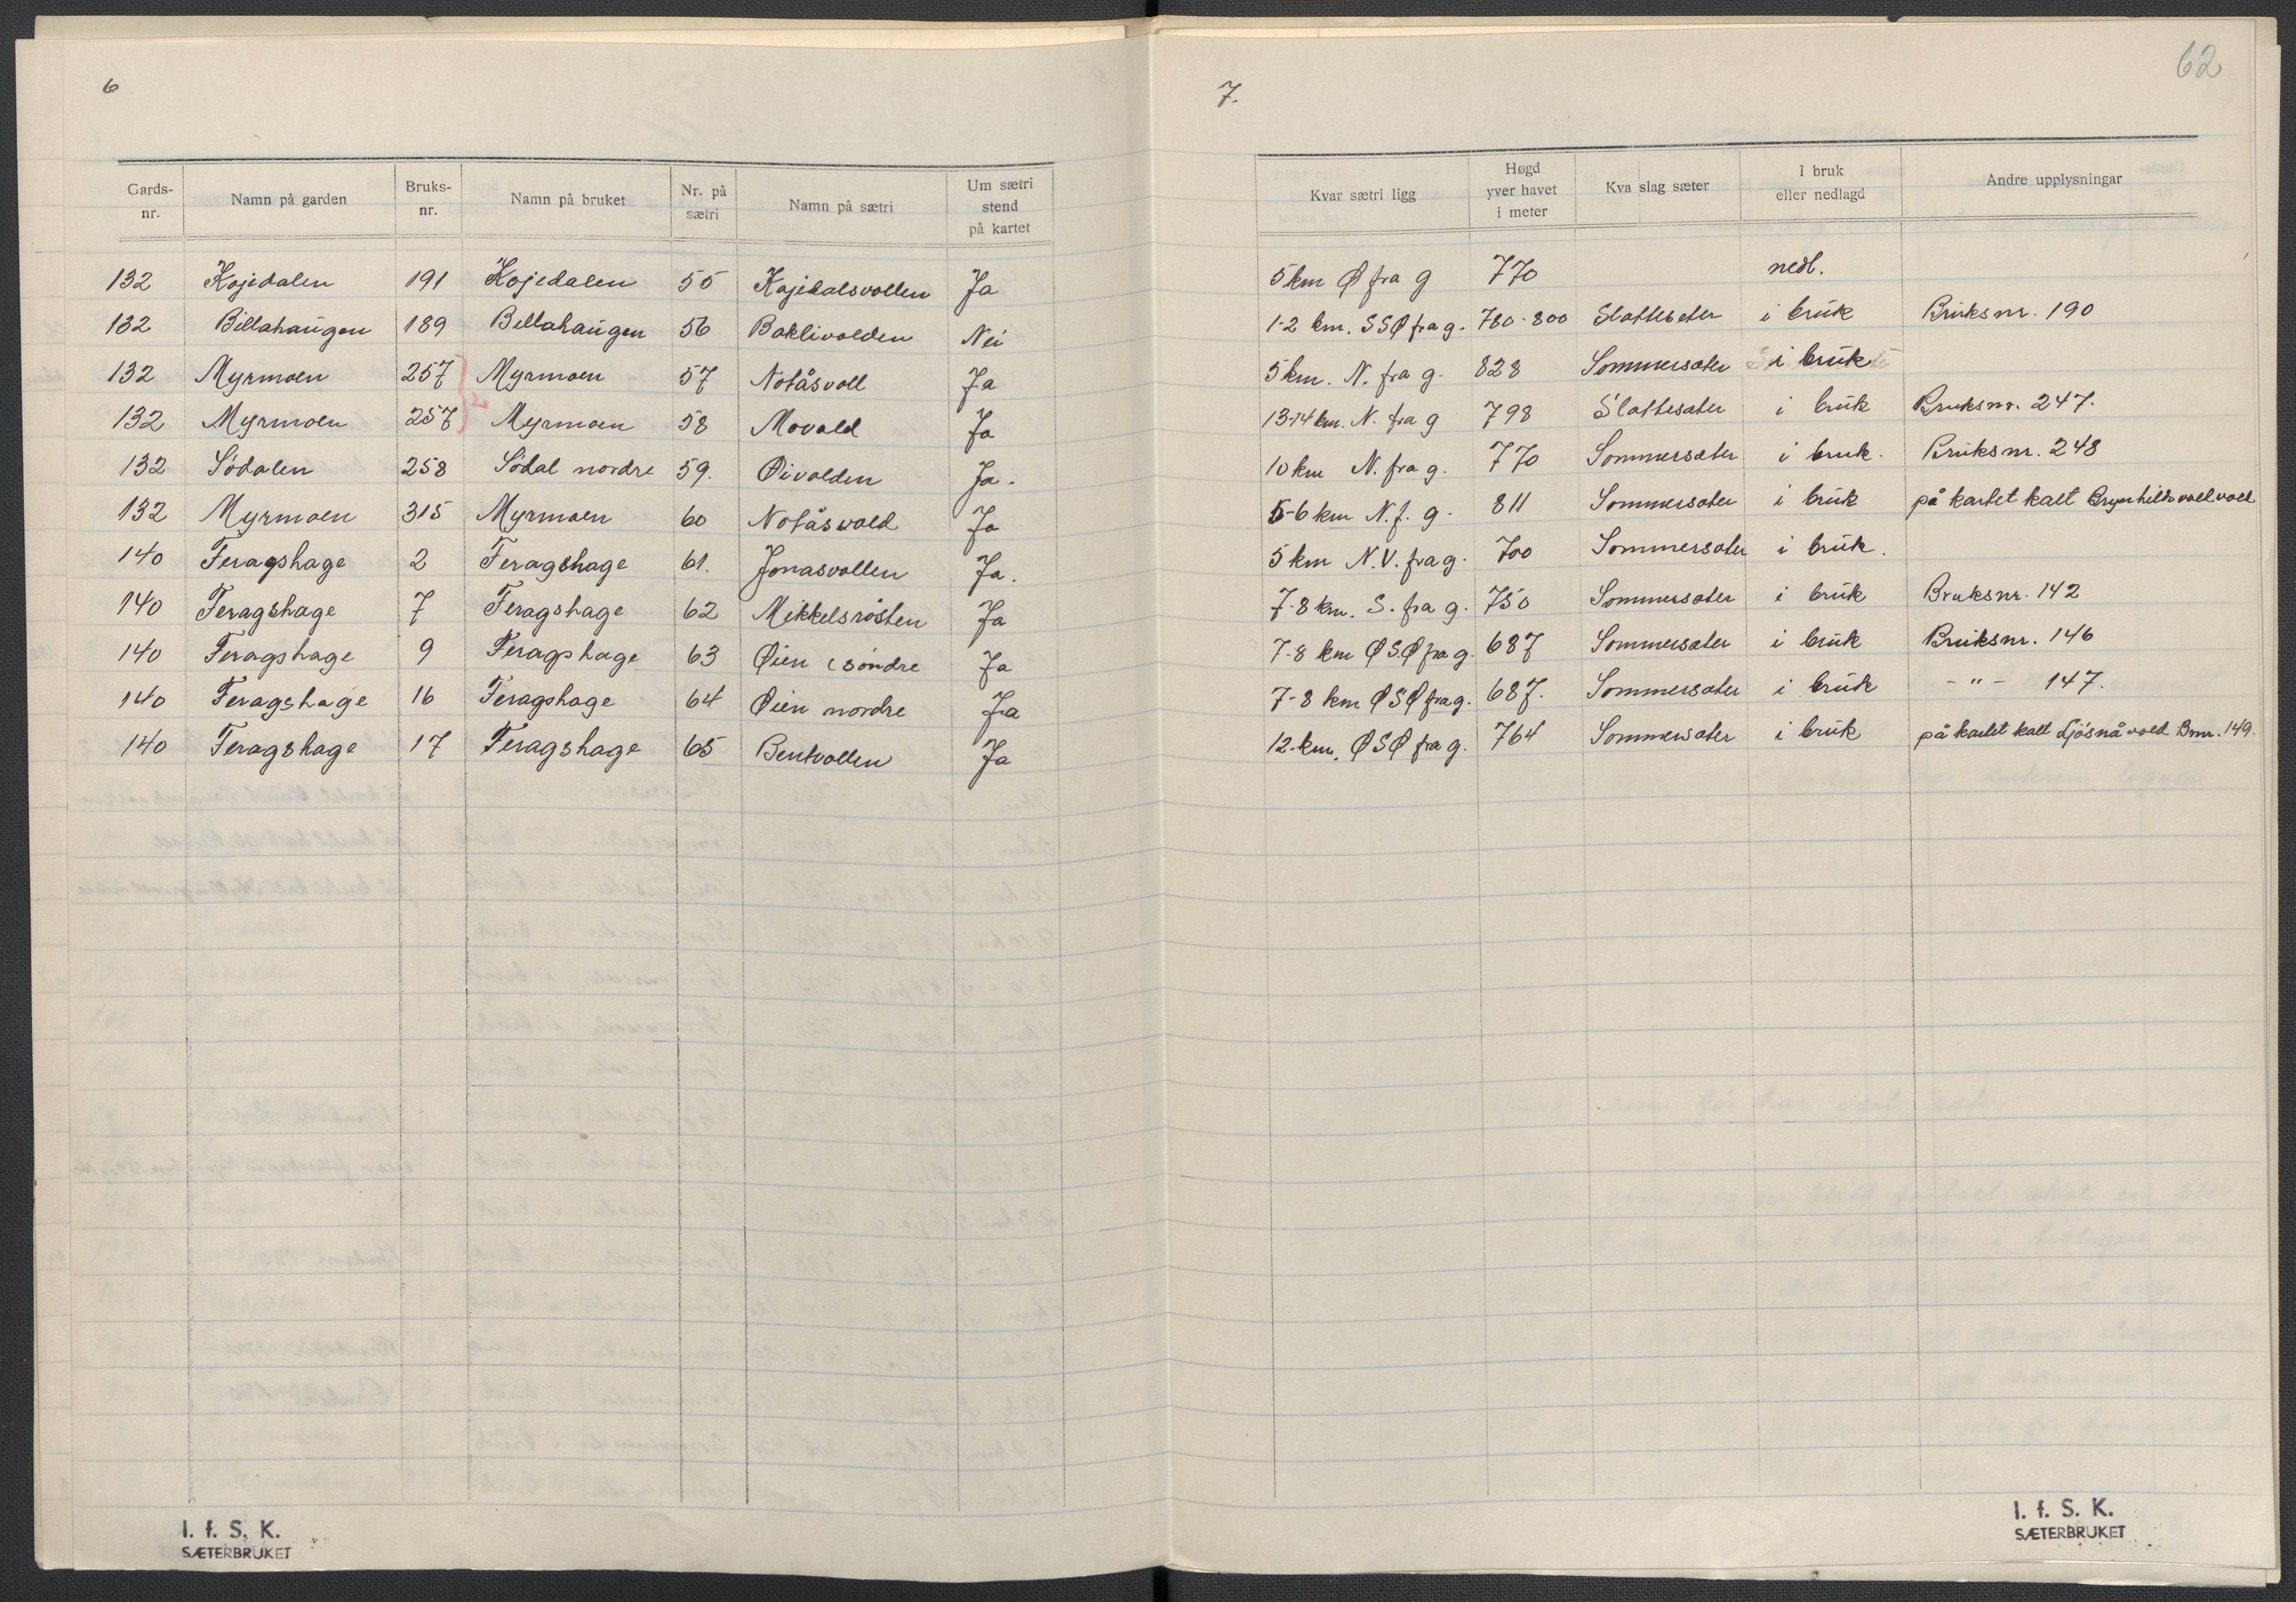 6
Gards-nr. Namn på garden Bruks-nr. Namn på bruket Nr. på sætri Namn på sætri Um sætri stend på kartet
132 Kojedalen 191 Kojedalen 55 Kojedalsvollen Ja
132 Billahaugen 189 Billahaugen 56 Baklivolden Nei
132 Myrmoen 257 Myrmoen 57 Notåsvoll Ja
132 Myrmoen 257 Myrmoen 58 Movold Ja
132 Södalen 258 Södal nordre 59. Øivolden Ja.
132 Myrmoen 315 Myrmoen 60 Notåsvold Ja
140 Feragshage 2 Feragshage 61. Jonasvollen Ja.
140 Feragshage 7 Feragshage 62 Mikkelsrösten Ja
140 Feragshage 9 Feragshage 63 Øien (söndre Ja
140 Feragshage 16 Feragshage 64 Øien nordre Ja
140 Feragshage 17 Feragshage 65 Bentvollen Ja
I. f. S. K.
SÆTERBRUKET
62
7.
Kvar sætri ligg Høgd yver havet i meter Kva slag sæter I bruk eller nedlagd Andre upplysningar
5 km Ø fra g 770 nedl.
1-2 km. SSØ fra g. 780-800 Slattesæter i bruk Bruksnr. 190
5 km. N. fra g. 828 Sommersæter i bruk
13-14 km. N. fra g 798 Slattesæter i bruk Bruksnr. 247.
10 km N. fra g. 770 Sommersæter i bruk. Bruksnr. 248
5-6 km N. f. g. 811 Sommersæter i bruk på kartet kalt Brynhildsvoll voll
5 km N.V. fra g. 700 Sommersæter i bruk.
7-8 km. S. fra g. 750 Sommersæter i bruk Bruksnr. 142
7-8 km ØSØ fra g. 687 Sommersæter i bruk Bruksnr. 146
7-8 km ØSØ fra g. 687. Sommersæter i bruk - " - 147.
12 km. ØSØ fra g. 764 Sommersæter i bruk på kartet kalt Ljösnåvold Bnr. 149.
I. f. S. K.
SÆTERBRUKET